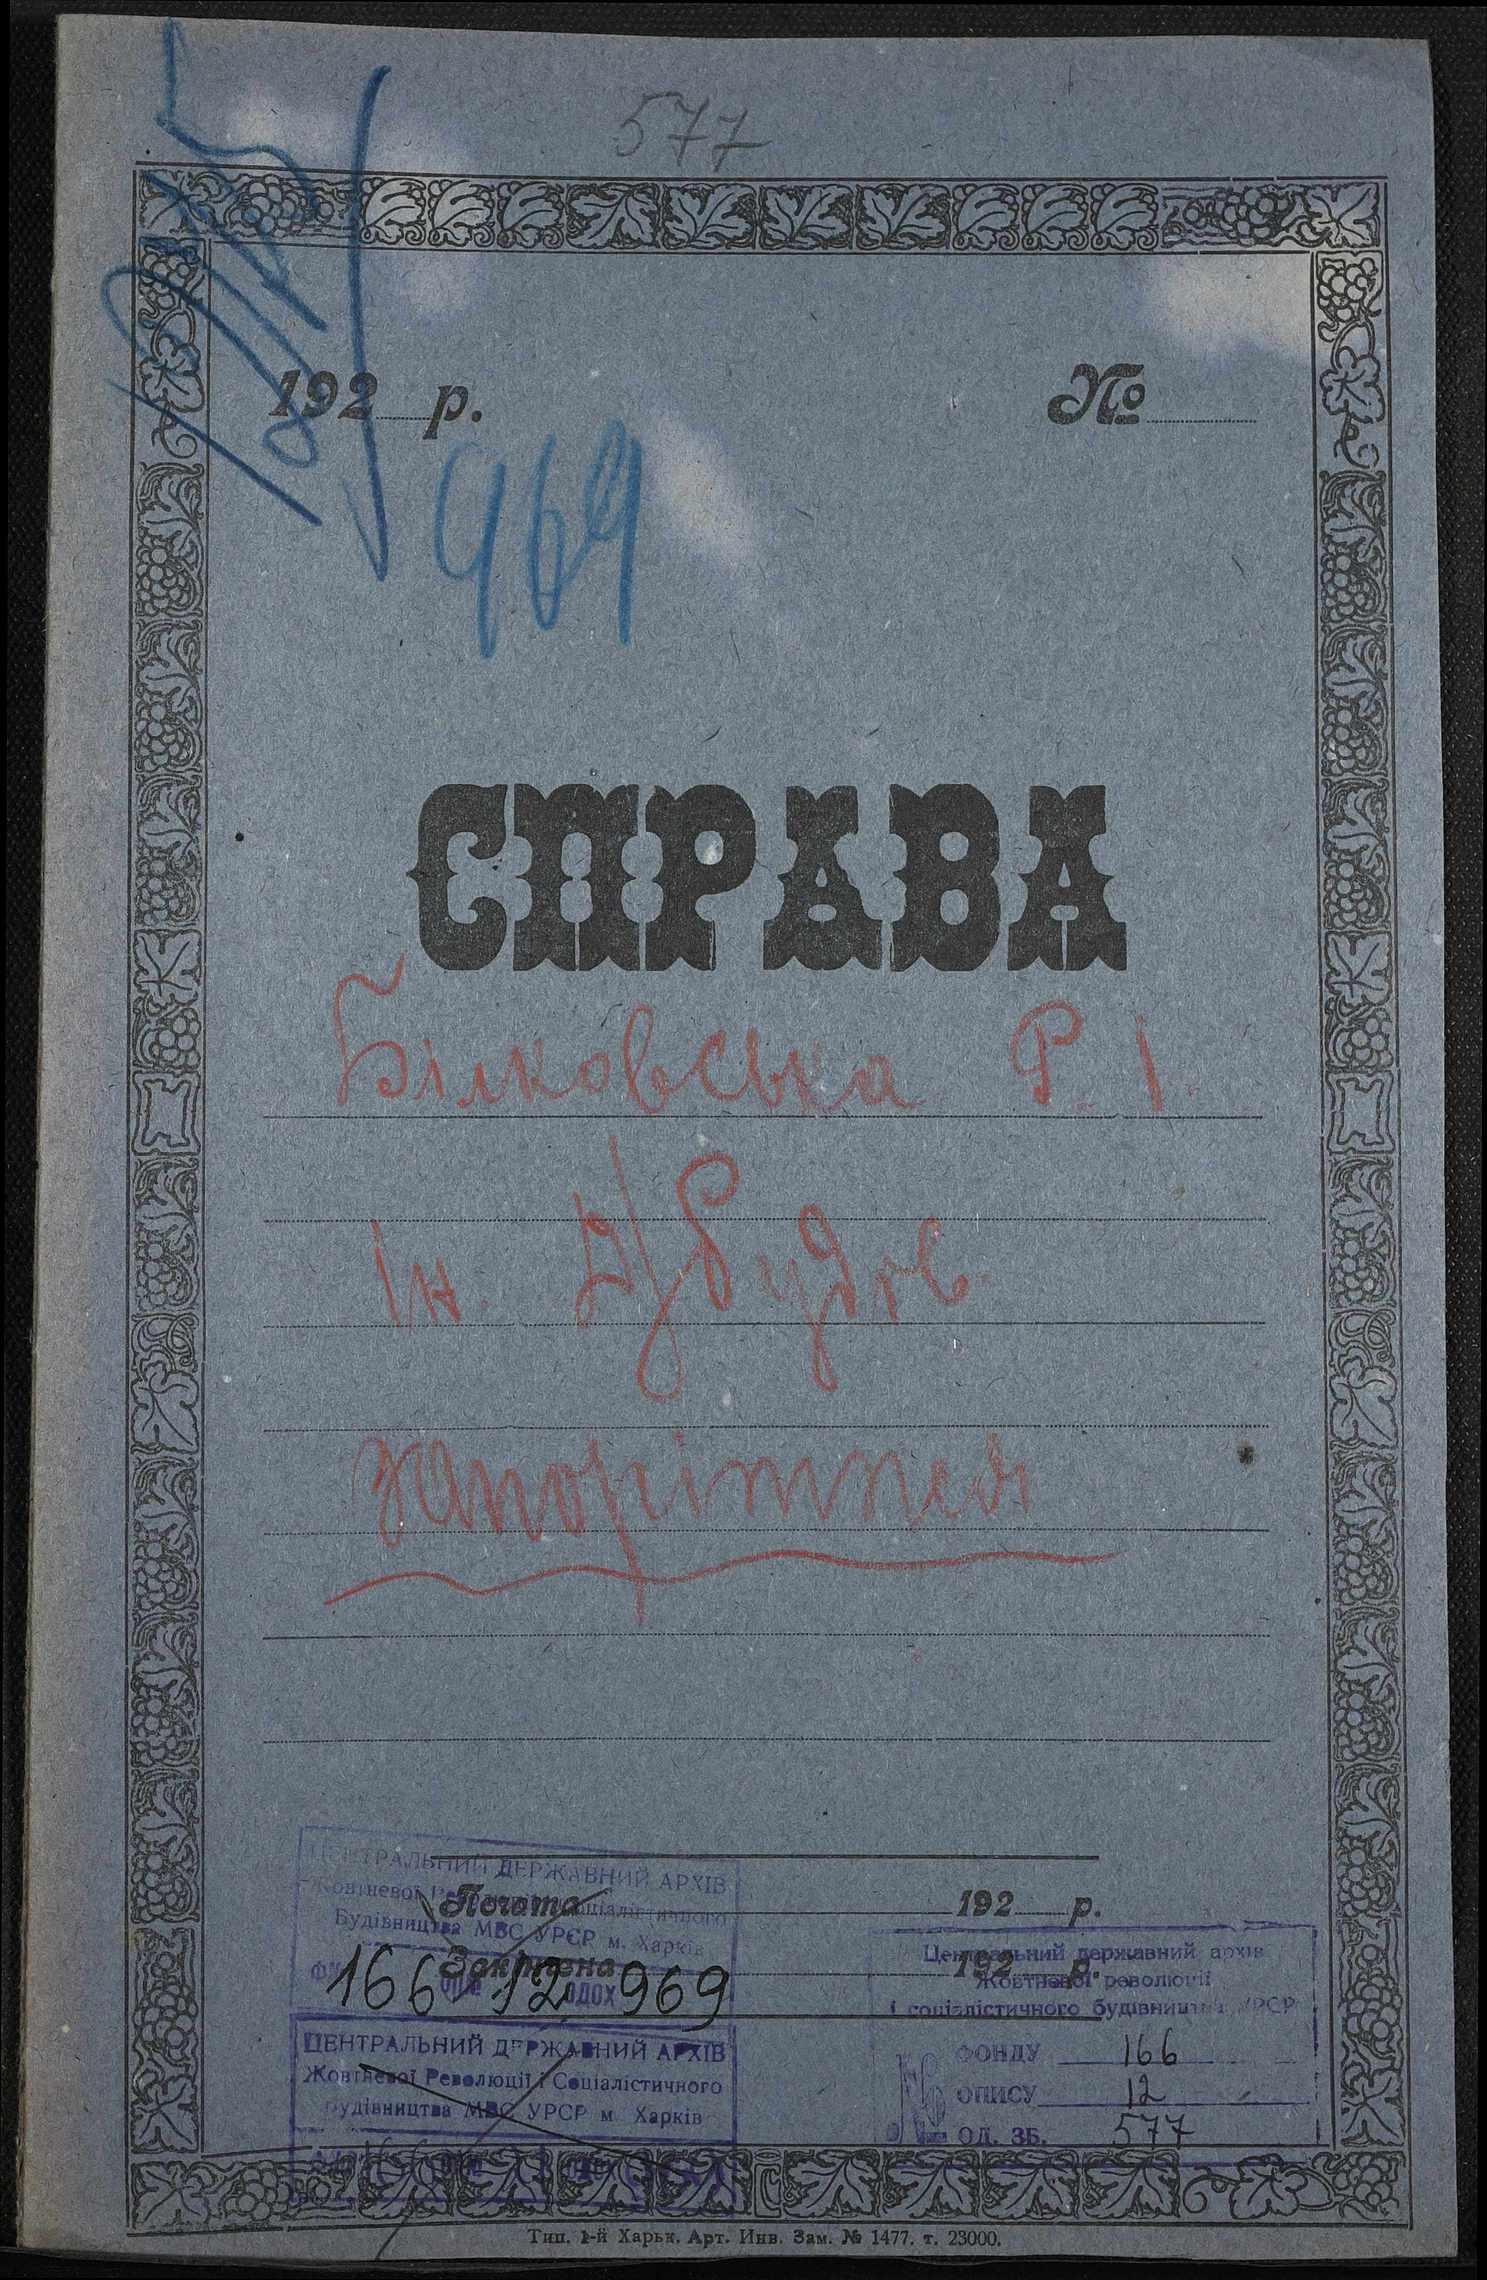 577
192 р. №
969
СПРАВА
Білковська Р. І.
Ін.
Запоріжжя
ЦЕНТРАЛЬНИЙ ДЕРЖАВНИЙ АРХІВ
Жовтневої Революції і Соціалістичного
Будівництва МВС УРСР м. Харків
Почата 192 р.
Закінчена 192 р.
166 12 969
ЦЕНТРАЛЬНИЙ ДЕРЖАВНИЙ АРХІВ
Жовтневої Революції і Соціалістичного
Будівництва МВС УРСР м. Харків
Центральний державний архів
Жовтневої революції
і соціалістичного будівництва УРСР
№ ФОНДУ 166
ОПИСУ 12
ОД. ЗБ. 577
Тип. 1-й Харьк. Арт. Инв. Зам. № 1477. т. 23000.